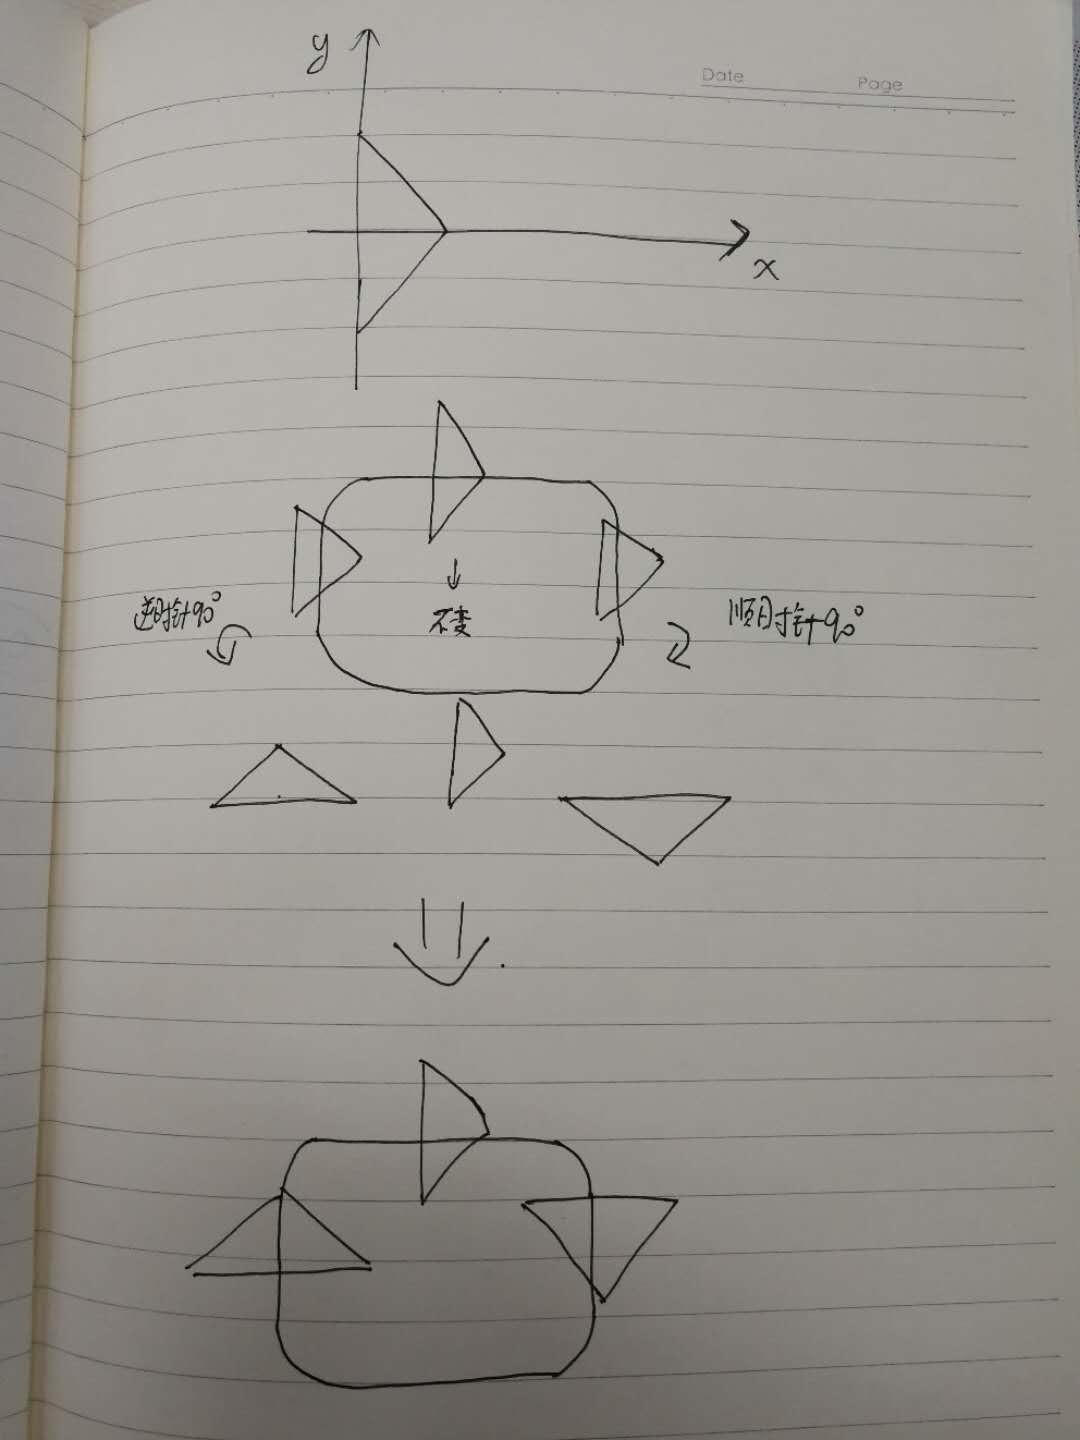 y
Date Page
x
逆时针90°
不变
顺时针90°